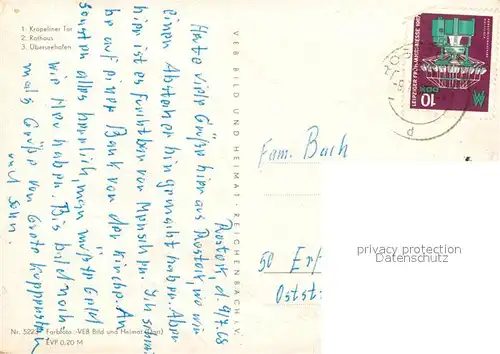 1: Kröpeliner Tor
2: Rathaus
3: Überseehafen
Rostock, d. 9.7.68
Herzte viele Grüße hier aus Rostock, wo wir
einen Abstecher hingemacht haben. Aber
hier ist es furchtbar von Menschen. Ich schreibe
hier auf einer Bank vor der Kirche. An
sonsten alles herrlich, man müßte Geld
wie Heu haben. Bis bald noch
mals Grüße von Grete
und Sohn.
VEB BILD UND HEIMAT · REICHENBACH i. V.
Nr. 5223 Farbfoto: VEB Bild und Heimat
EVP 0,20 M
LEIPZIGER FRÜHJAHRSMESSE 1967
DDR
10
Fam. Bach
50 Erf
Oststr
privacy protection
Datenschutz